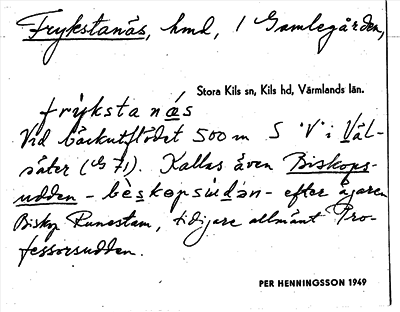 Frykstanäs, hmd, 1 Gamlegården,
Stora Kils sn, Kils hd, Värmlands län.
frykstanás
Vid bäckutflödet 500 m S "V" i Väl-
säter (G 71). Kallas även Biskops-
udden - bèskopsúdən - efter ägaren
Biskop Runestam, tidigare allmänt Pro-
fessorsudden.
PER HENNINGSSON 1949